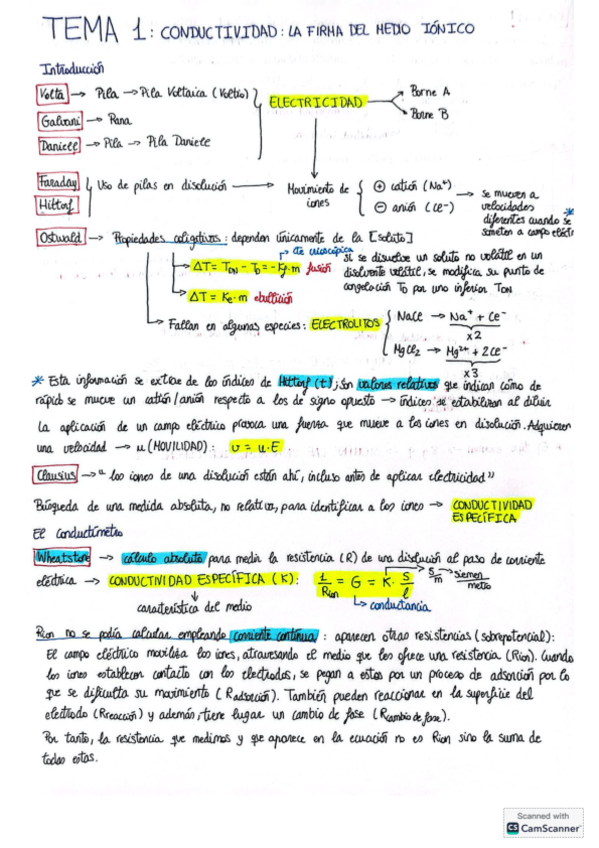 TEMA 1: CONDUCTIVIDAD: LA FIRMA DEL MEDIO IÓNICO
Introducción
Volta → Pila → Pila Voltaica (Voltio)
ELECTRICIDAD
Borne A
Borne B
Galvani → Rana
Daniell → Pila → Pila Daniell
Faraday
Hittorf
Uso de pilas en disolución → Movimiento de iones
⊕ catión (Na⁺)
⊖ anión (Cl⁻)
→ se mueven a velocidades diferentes cuando se someten a campo eléctr *
Ostwald → Propiedades coligativas: dependen únicamente de la [soluto]
→ cte crioscópica
→ ΔT = T_DN - T_D = -K_f·m fusión
→ ΔT = K_e·m ebullición
Si se disuelve un soluto no volátil en un
disolvente volátil, se modifica su punto de
congelación T_D por uno inferior T_DN
→ Fallan en algunas especies: ELECTROLITOS
NaCl → Na⁺ + Cl⁻
x2
MgCl₂ → Mg²⁺ + 2Cl⁻
x3
* Esta información se extrae de los índices de Hittorf (t); Son valores relativos que indican cómo de
rápido se mueve un catión/anión respecto a los de signo opuesto → índices se estabilizan al diluir
La aplicación de un campo eléctrico provoca una fuerza que mueve a los iones en disolución. Adquieren
una velocidad → u (MOVILIDAD): v = u·E
Clausius → "los iones de una disolución están ahí, incluso antes de aplicar electricidad"
Búsqueda de una medida absoluta, no relativa, para identificar a los iones → CONDUCTIVIDAD
ESPECÍFICA
El conductímetro
Wheatstone → cálculo absoluto para medir la resistencia (R) de una disolución al paso de corriente
eléctrica → CONDUCTIVIDAD ESPECÍFICA (K): 1/Rion = G = K · S/l
S/m → siemen/metro
característica del medio
conductancia
Rion no se podía calcular empleando corriente continua: aparecen otras resistencias (sobrepotencial):
El campo eléctrico moviliza los iones, atravesando el medio que les ofrece una resistencia (Rion). Cuando
los iones establecen contacto con los electrodos, se pegan a estos por un proceso de adsorción por lo
que se dificulta su movimiento (Radsorción). También pueden reaccionar en la superficie del
electrodo (Rreacción) y además, tiene lugar un cambio de fase (Rcambio de fase).
Por tanto, la resistencia que medimos y que aparece en la ecuación no es Rion sino la suma de
todas estas.
Scanned with
CS CamScanner